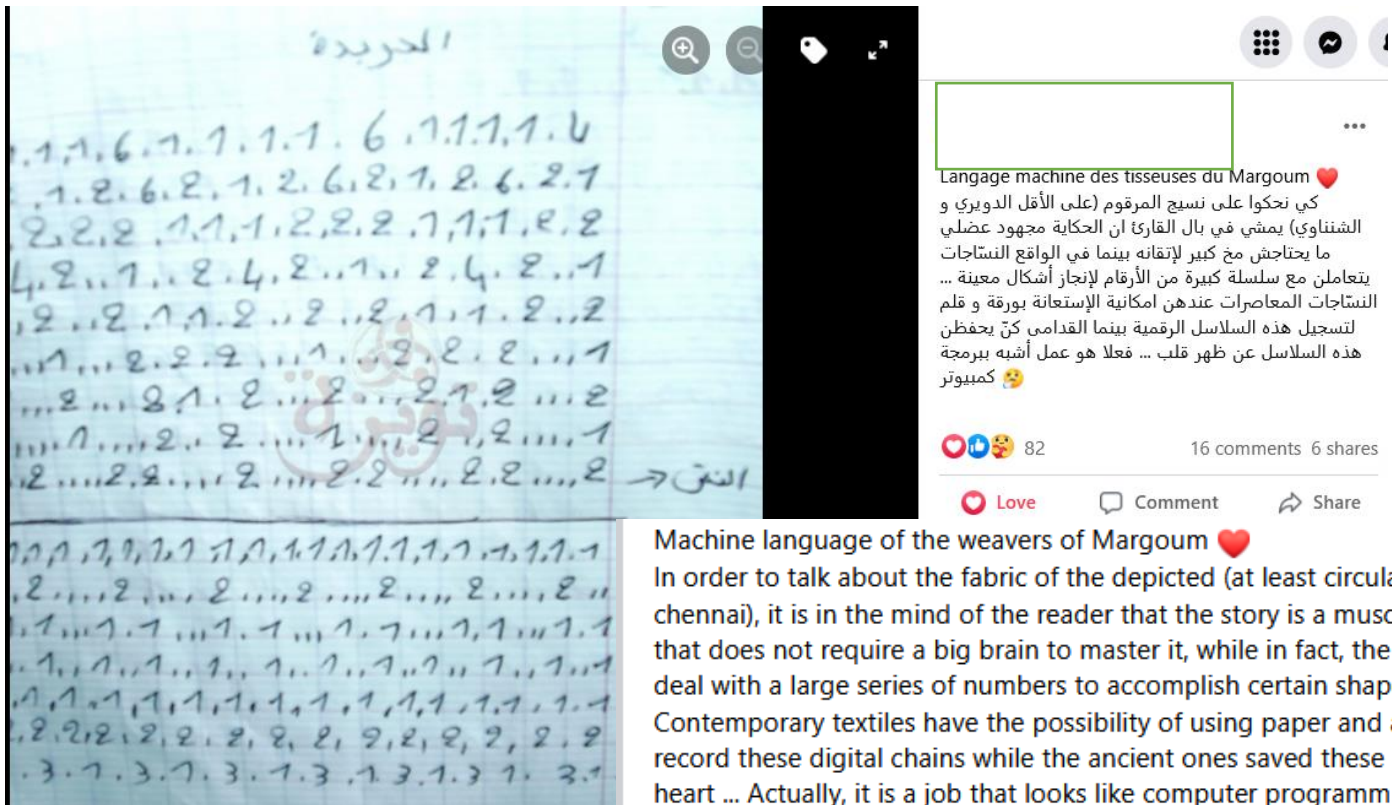 الجريدة
1.1,1.6.1.1.1.1.1. 6 .1.1.1.1.1.4
.1.2.6.2.1.2.6.2.1.2.6.2.1
2.2.2.1.1.1.2.2.2.1.1.1.2.2
4.2..1..2.4.2..1..2.4.2..1
.2..2.1.1.2..2..2.1.1.2..2
...1...2.2.2...1...2.2.2...1
...2...2.1.2...2...2.1.2...2
....1....2..2....1....2..2....1
.2....2.2....2....2.2....2.2....2
نويرة
1.1.1.1.1.1.1.1.1.1.1.1.1.1.1.1.1.1.1
.2....2....2....2....2....2....2..
.1...1.1...1.1...1.1...1.1...1.1
.1..1..1..1..1..1..1..1..1..1
.1.1.1.1.1.1.1.1.1.1.1.1.1.1.1
.2.2.2.2.2.2.2.2.2.2.2.2.2.2
.3.1.3.1.3.1.3.1.3.1.3.1.3.1
Langage machine des tisseuses du Margoum ❤️
كي نحكوا على نسيج المرقوم (على الأقل الدويري و
الشنناوي) يمشي في بال القارئ ان الحكاية مجهود عضلي
ما يحتاجش مخ كبير لإتقانه بينما في الواقع النسّاجات
يتعاملن مع سلسلة كبيرة من الأرقام لإنجاز أشكال معينة ...
النسّاجات المعاصرات عندهن امكانية الإستعانة بورقة و قلم
لتسجيل هذه السلاسل الرقمية بينما القدامى كنّ يحفظن
هذه السلاسل عن ظهر قلب ... فعلا هو عمل أشبه ببرمجة
كمبيوتر 🤔
82 16 comments 6 shares
Love Comment Share
Machine language of the weavers of Margoum ❤️
In order to talk about the fabric of the depicted (at least circula
chennai), it is in the mind of the reader that the story is a musc
that does not require a big brain to master it, while in fact, the
deal with a large series of numbers to accomplish certain shap
Contemporary textiles have the possibility of using paper and a
record these digital chains while the ancient ones saved these
heart ... Actually, it is a job that looks like computer programm